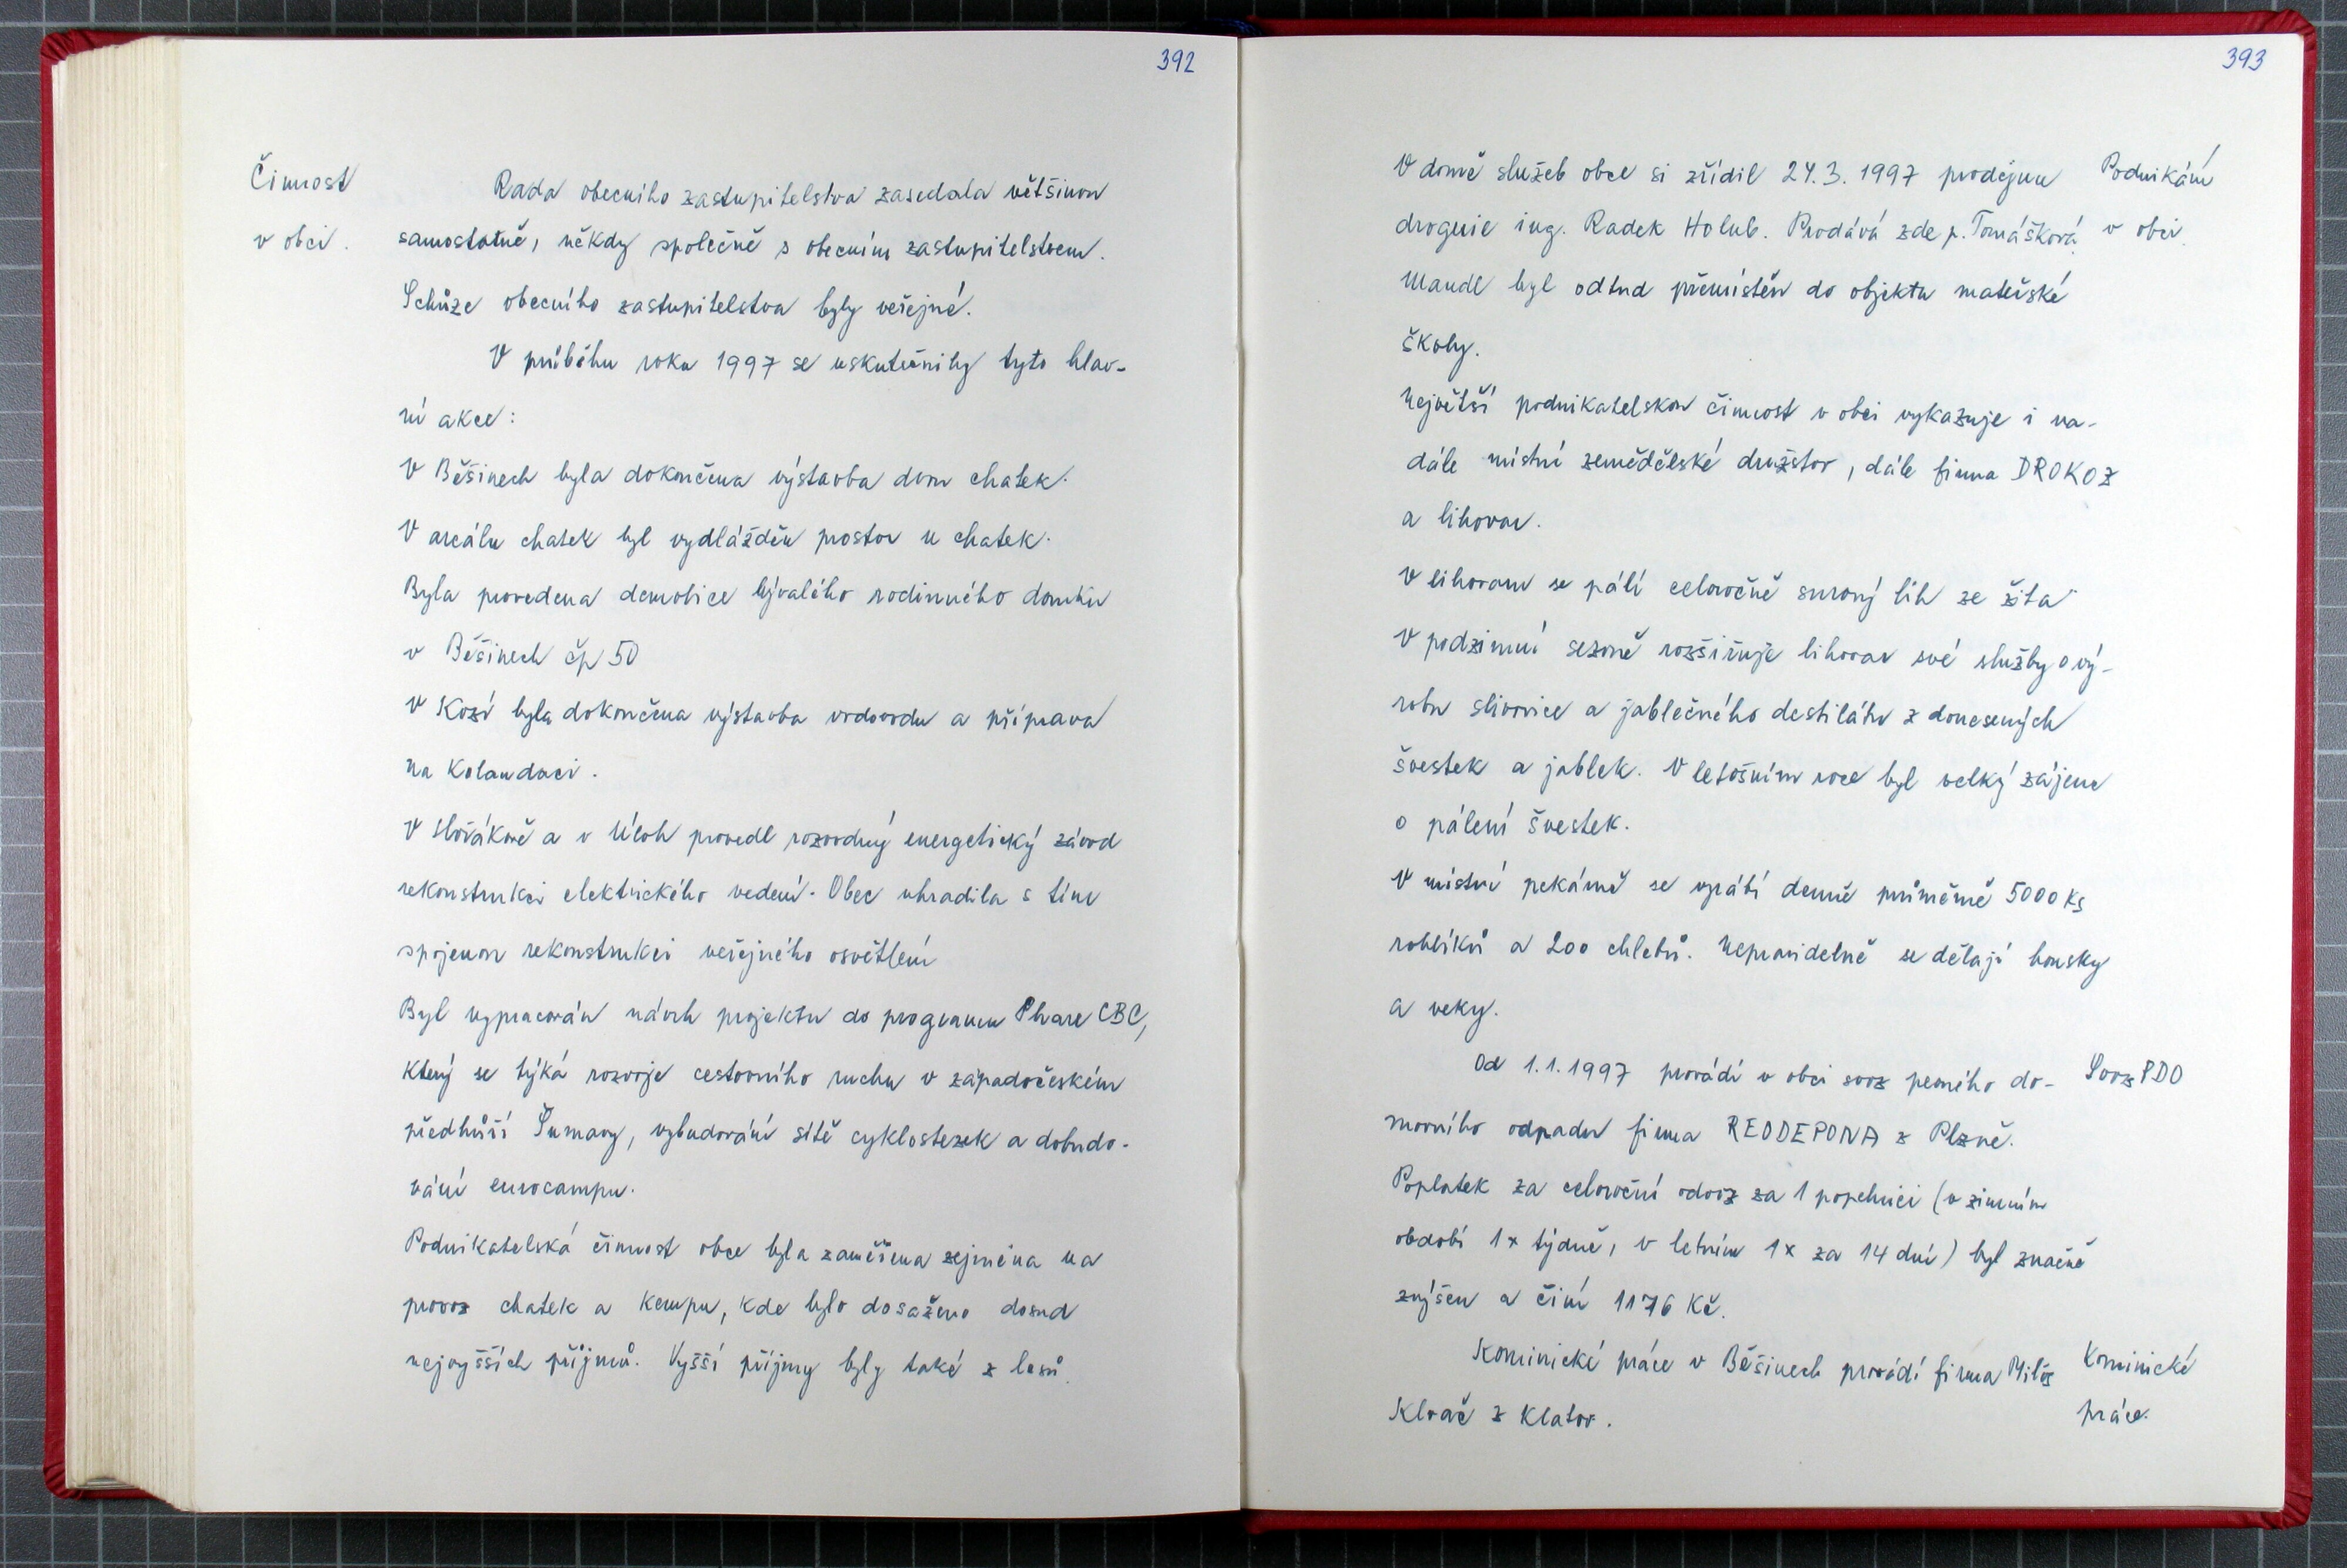 392
Činnost
v obci.
Rada obecního zastupitelstva zasedala většinou
samostatně, někdy společně s obecním zastupitelstvem.
Schůze obecního zastupitelstva byly veřejné.
V průběhu roku 1997 se uskutečnily tyto hlav-
ní akce:
V Běšinech byla dokončena výstavba dvou chatek.
V areálu chatek byl vydlážděn prostor u chatek.
Byla provedena demolice bývalého rodinného domku
v Běšinech čp 50
V Kozí byla dokončena výstavba vodovodu a příprava
na kolaudaci.
V Hořákově a v Úloh provedl rozvodný energetický závod
rekonstrukci elektrického vedení. Obec uhradila s tím
spojenou rekonstrukci veřejného osvětlení
Byl vypracován návrh projektu do programu Phare CBC,
který se týká rozvoje cestovního ruchu v západočeském
předhůří Šumavy, vybudování sítě cyklostezek a dobudo-
vání eurocampu.
Podnikatelská činnost obce byla zaměřena zejména na
provoz chatek a kempu, kde bylo dosaženo dosud
nejvyšších příjmů. Vyšší příjmy byly také z lesů.
393
V domě služeb obce si zřídil 24.3.1997 prodejnu
drogerie ing. Radek Holub. Prodává zde p. Tomášková.
Mandl byl odtud přemístěn do objektu mateřské
školy.
Podnikání
v obci.
Největší podnikatelskou činnost v obci vykazuje i na-
dále místní zemědělské družstvo, dále firma DROKOZ
a lihovar.
V lihovaru se pálí celoročně surový líh ze žita
V podzimní sezoně rozšiřuje lihovar své služby o vý-
robu slivovice a jablečného destilátu z donesených
švestek a jablek. V letošním roce byl velký zájem
o pálení švestek.
V místní pekárně se vyrábí denně průměrně 5000 ks
rohlíků a 200 chlebů. Nepravidelně se dělají housky
a veky.
Od 1.1.1997 provádí v obci svoz pevného do-
movního odpadu firma REODEPONA z Plzně.
Svoz PDO
Poplatek za celoroční odvoz za 1 popelnici (v zimním
období 1x týdně, v letním 1x za 14 dní) byl značně
zvýšen a činí 1176 Kč.
Kominické práce v Běšinech provádí firma Miloš
Klvač z Klatov.
Kominické
práce.